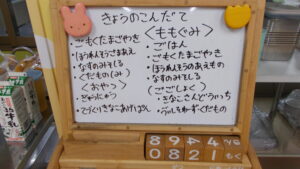 きょうのこんだて
・ごもくたまごやき
・ほうれんそうごまあえ
・なすのみそしる
・くだもの(み)
〈おやつ〉
・ぎゅうにゅう
・てづくりきなこあげぱん
〈ももぐみ〉
・ごはん
・ごもくたまごやき
・ほうれんそうのあえもの
・なすのみそしる
(ごごしょく)
・きなこさんどういっち
・くだもの